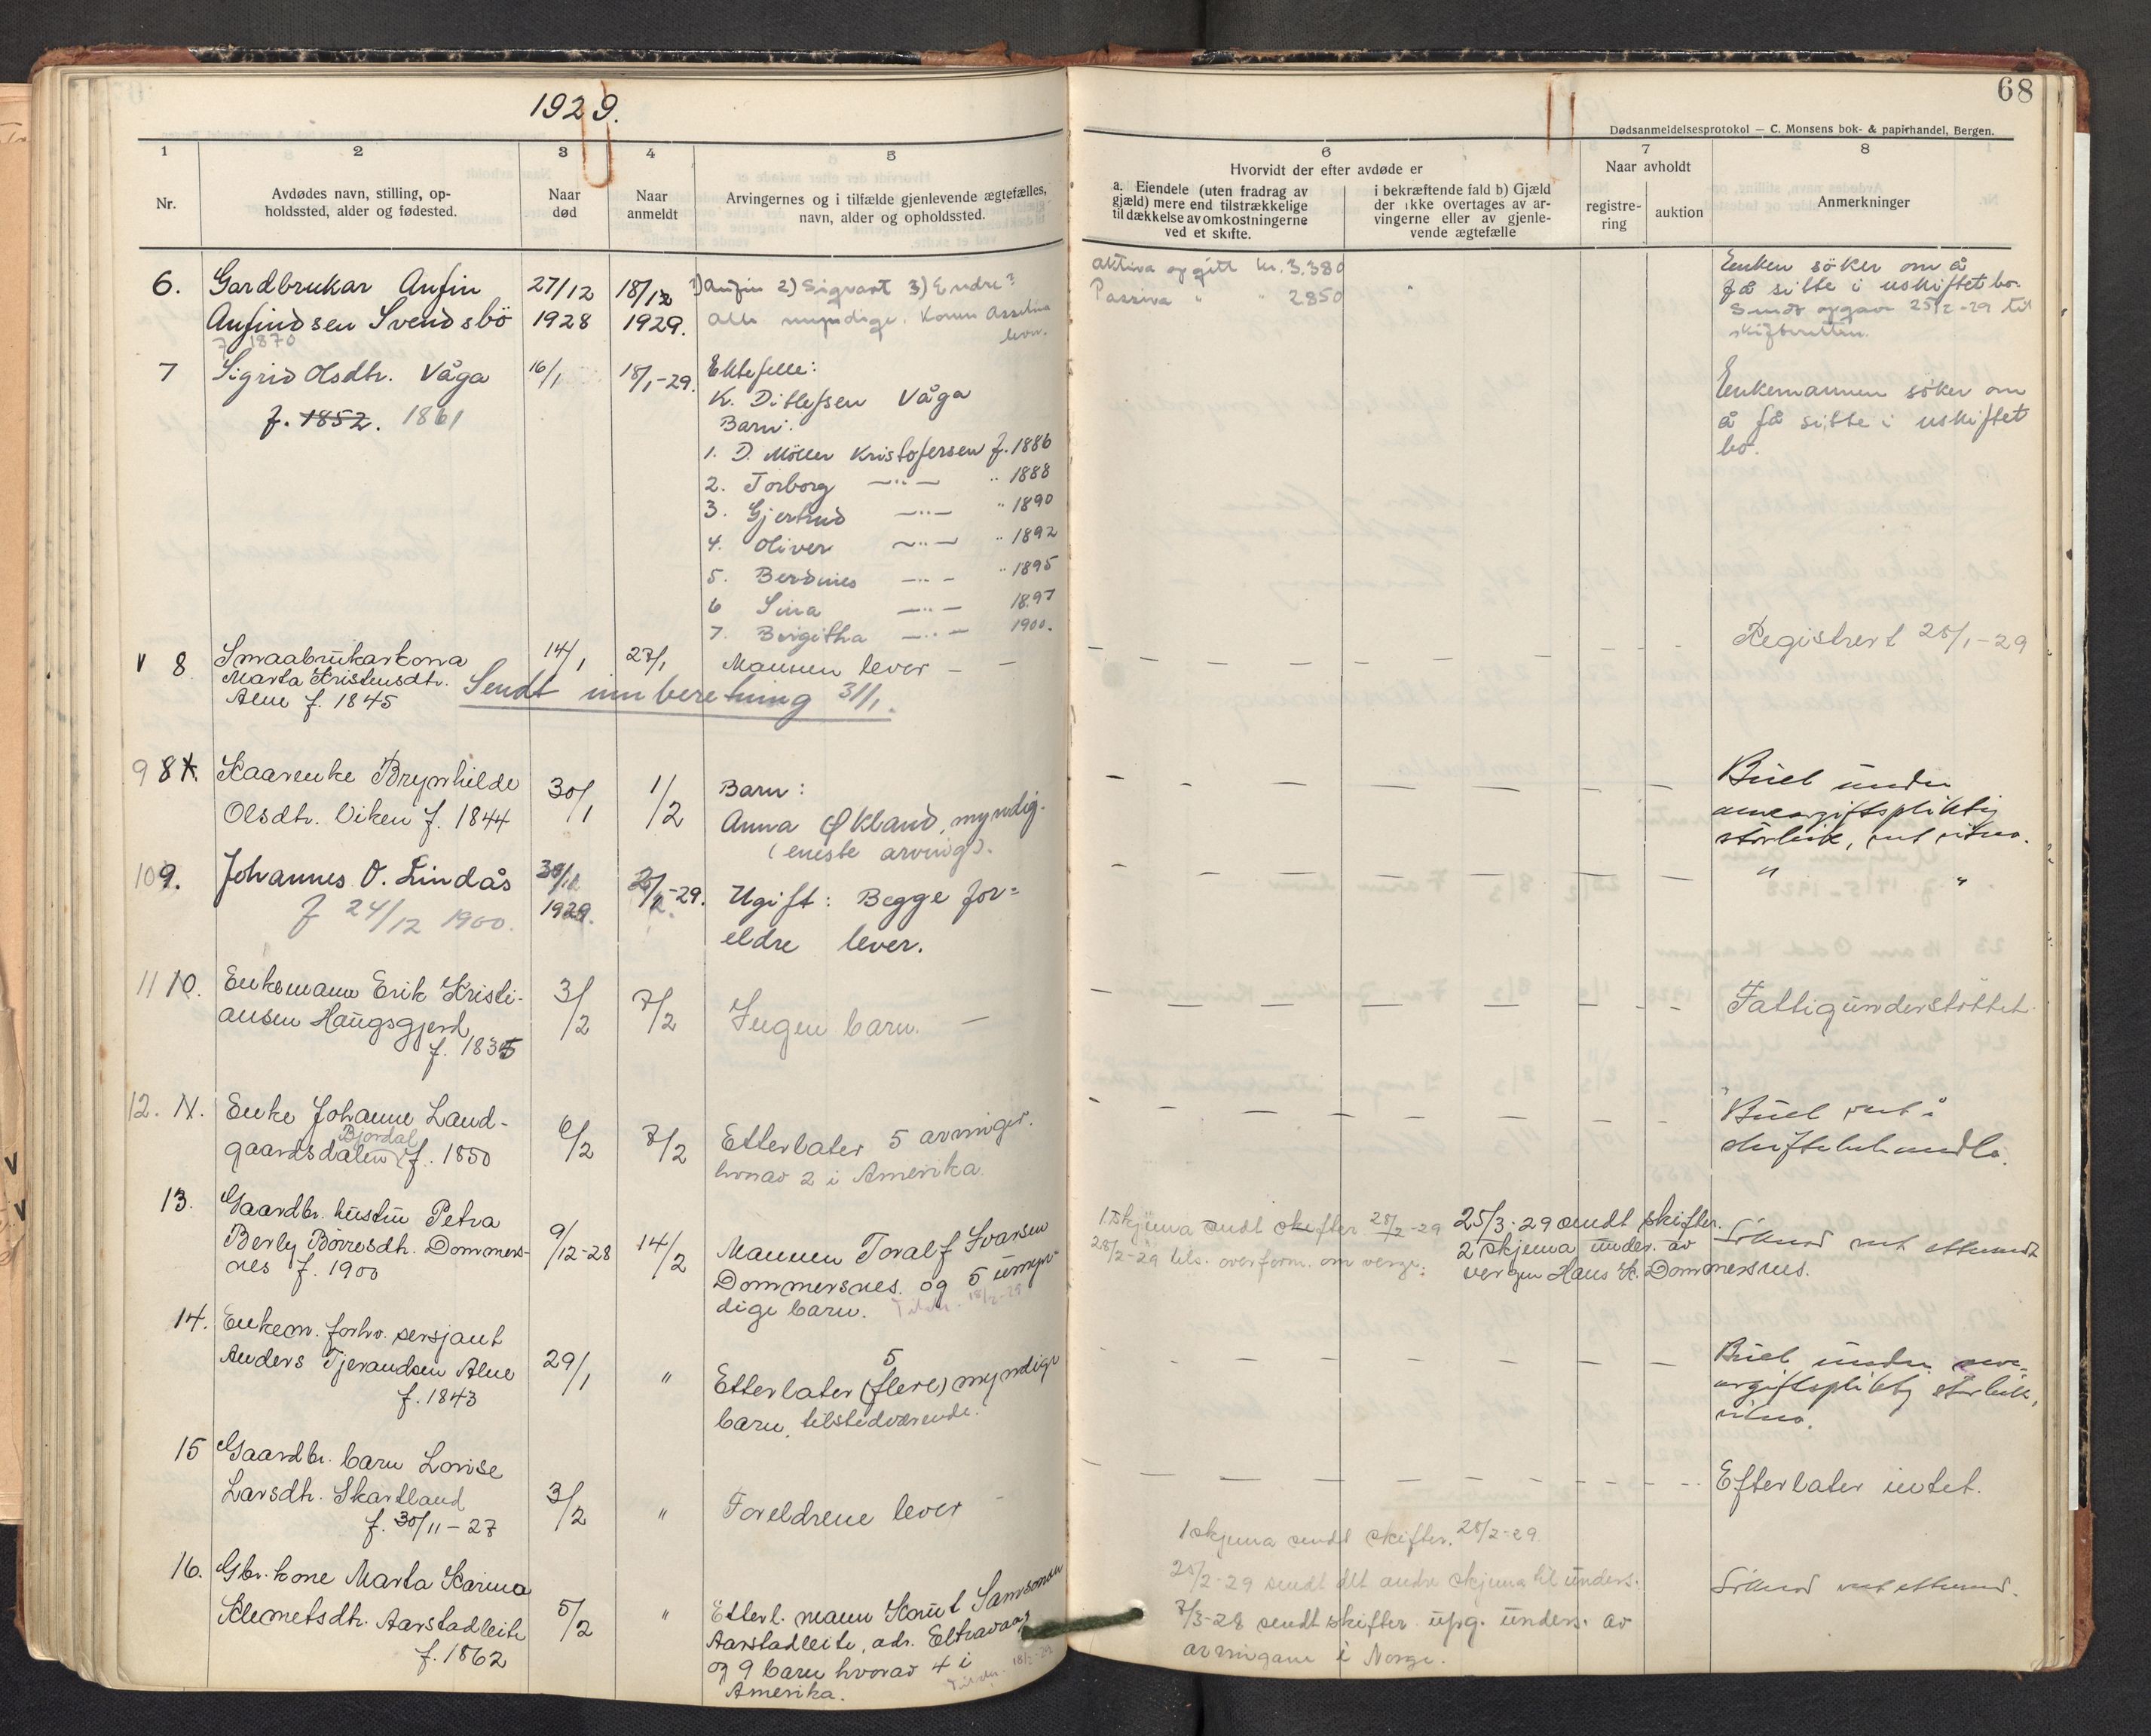 1929.
68
Dødsanmeldelsesprotokol — C. Monsens bok- & papirhandel, Bergen.
1
2
3
4
5
6
7
8
Nr.
Avdødes navn, stilling, op-
holdssted, alder og fødested.
Naar
død
Naar
anmeldt
Arvingernes og i tilfælde gjenlevende ægtefælles,
navn, alder og opholdssted.
Hvorvidt der efter avdøde er
a. Eiendele (uten fradrag av
gjæld) mere end tilstrækkelige
til dækkelse av omkostningerne
ved et skifte.
i bekræftende fald b) Gjæld
der ikke overtages av ar-
vingerne eller av gjenle-
vende ægtefælle
Naar avholdt
registre-
ring
auktion
Anmerkninger
6.
Gardbrukar Anfin
Anfindsen Svendsbö
f. 1870
27/12
1928
18/12
1929.
1) Anfin 2) Sigvart 3) Endre?
Alle myndige. Konen
lever.
Aktiva opgitt kr. 3.380
Passiva " " 2850
Enken söker om å
få sitte i uskiftet bo.
Sendt opgave 25/2-29 til
skifteretten.
7
Sigrid Olsdtr. Våga
f. 1852. 1861
16/1
18/1-29.
Ektefelle:
K. Ditlefsen Våga
Barn:
1. D. Möller Kristofersen f. 1886
2. Torborg —"— " 1888
3. Gjertrud —"— " 1890
4. Oliver —"— " 1892
5. Berdines —"— " 1895
6 Sina —"— 1897
7. Birgitha —"— 1900.
Enkemannen söker om
å få sitte i uskiftet
bo.
v 8
Smaabrukarkona
Marta Kristensdtr.
Alne f. 1845
14/1
27/1
Mannen lever —
Registrert 28/1-29
Sendt innberetning 31/1.
9 8.
Kaarenke Brynhilde
Olsdtr. Viken f. 1844
30/1
1/2
Barn:
Anna Økland, myndig.
(eneste arving).
Buet under
arveavgiftspliktig
störleik,
10 9.
Johannes O. Lindås
f 24/12 1900.
1929.
-29.
Ugift: Begge for=
eldre lever.
" "
11 10.
Enkemann Erik Kristi-
ansen Haugsgjerd
f. 1835
3/2
7/2
Ingen barn. —
Fattigunderstöttet.
12. 11.
Enke Johanne Land-
Bjordal
gaardsdalen f. 1850
6/2
7/2
Etterlater 5 arvinger.
hvorav 2 i Amerika.
Buet
skiftebehandla.
13.
Gaardbr. hustru Petra
Berly Börresdtr. Dommers-
nes f. 1900
9/12-28
14/2
Mannen Toralf Ivarsen
Dommersnes. og 5 umyn-
dige barn. 18/2-29
1 skjema sendt skifter 28/2-29
28/2-29 tils. overform. om verge.
25/3-29 sendt skifter.
2 skjema under. av
vergen Hans K. Dommersnes.
14.
Enkem. forhv. sersjant
Anders Tjerandsen Alne
f. 1843
29/1
"
5
Etterlater (flere) myndige
barn, tilstedværende.
Buet under arve-
avgiftspliktig störleik,
15
Gaardbr. barn Lovise
Larsdtr. Skartland
f. 30/11-27
3/2
"
Foreldrene lever —
Efterlater intet.
16.
Gbr. kone Marta Karina
Klemetsdtr. Aarstadleite
f. 1862
5/2
"
Etterl. mann Knut Samsonsen
Aarstadleite, adr. Eltravaag
og 9 barn hvorav 4 i
Amerika. 18/2-29
1 skjema sendt skifter. 28/2-29.
28/2-29 sendt det andre skjema til unders.
7/3-28 sendt skifter upg. unders. av
arvingane i Norge.